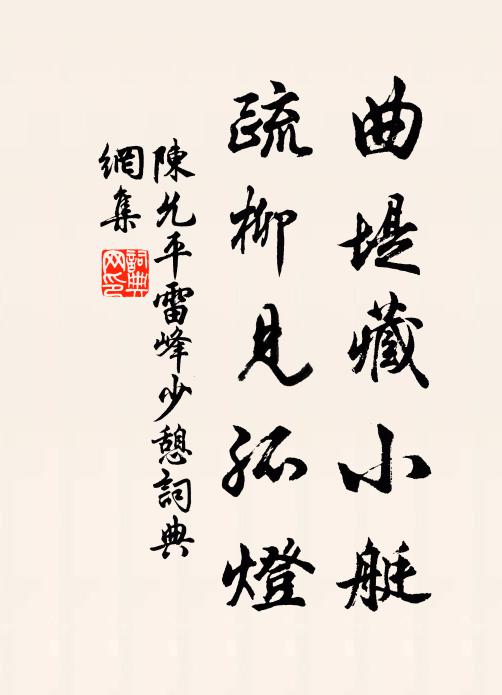 曲堤藏小艇
疏柳見孤燈
陳允平雷峰少憩詞典
網集
詞典
网印